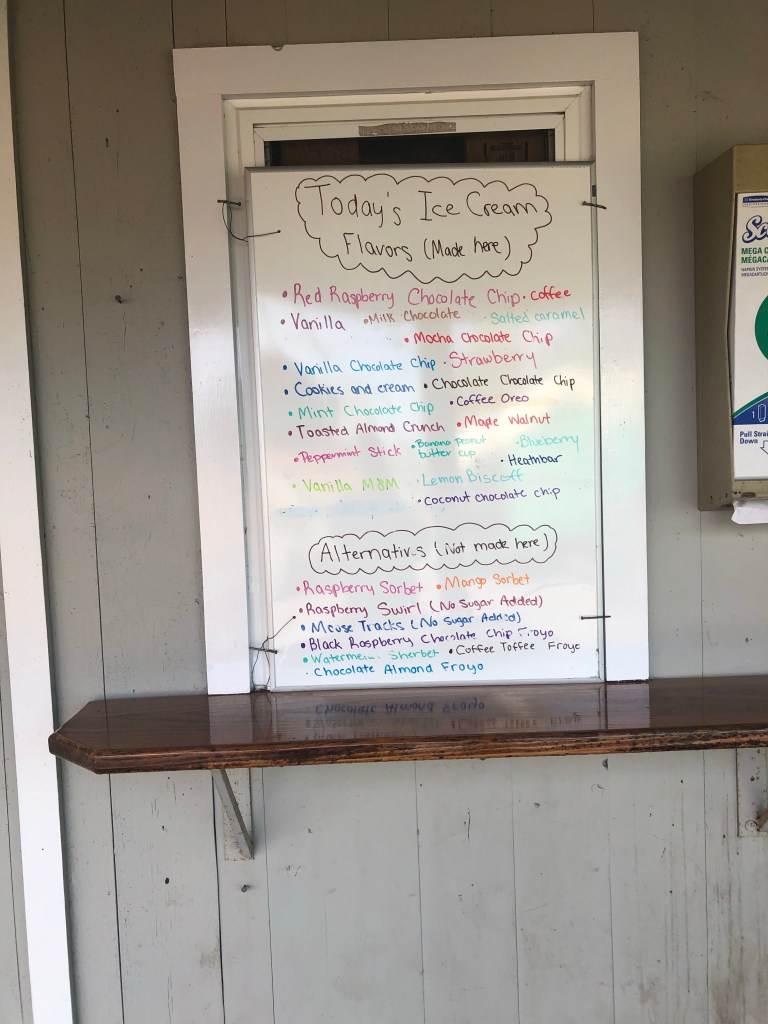 Today's Ice Cream
Flavors (Made here)
• Red Raspberry Chocolate Chip • Coffee
• Vanilla • Milk Chocolate • Salted caramel
• Mocha Chocolate Chip
• Vanilla Chocolate Chip • Strawberry
• Cookies and cream • Chocolate Chocolate Chip
• Mint Chocolate Chip • Coffee Oreo
• Toasted Almond Crunch • Maple Walnut
• Peppermint Stick • Banana peanut butter cup • Blueberry
• Heathbar
• Vanilla M&M • Lemon Biscoff
• Coconut chocolate chip
Alternativs (Not made here)
• Raspberry Sorbet • Mango Sorbet
• Raspberry Swirl (No Sugar Added)
• Moose Tracks (No Sugar Added)
• Black Raspberry Chocolate Chip Froyo
• Watermelon Sherbet • Coffee Toffee Froyo
• Chocolate Almond Froyo
MEGA C
MEGACA
Pull Strai
Down